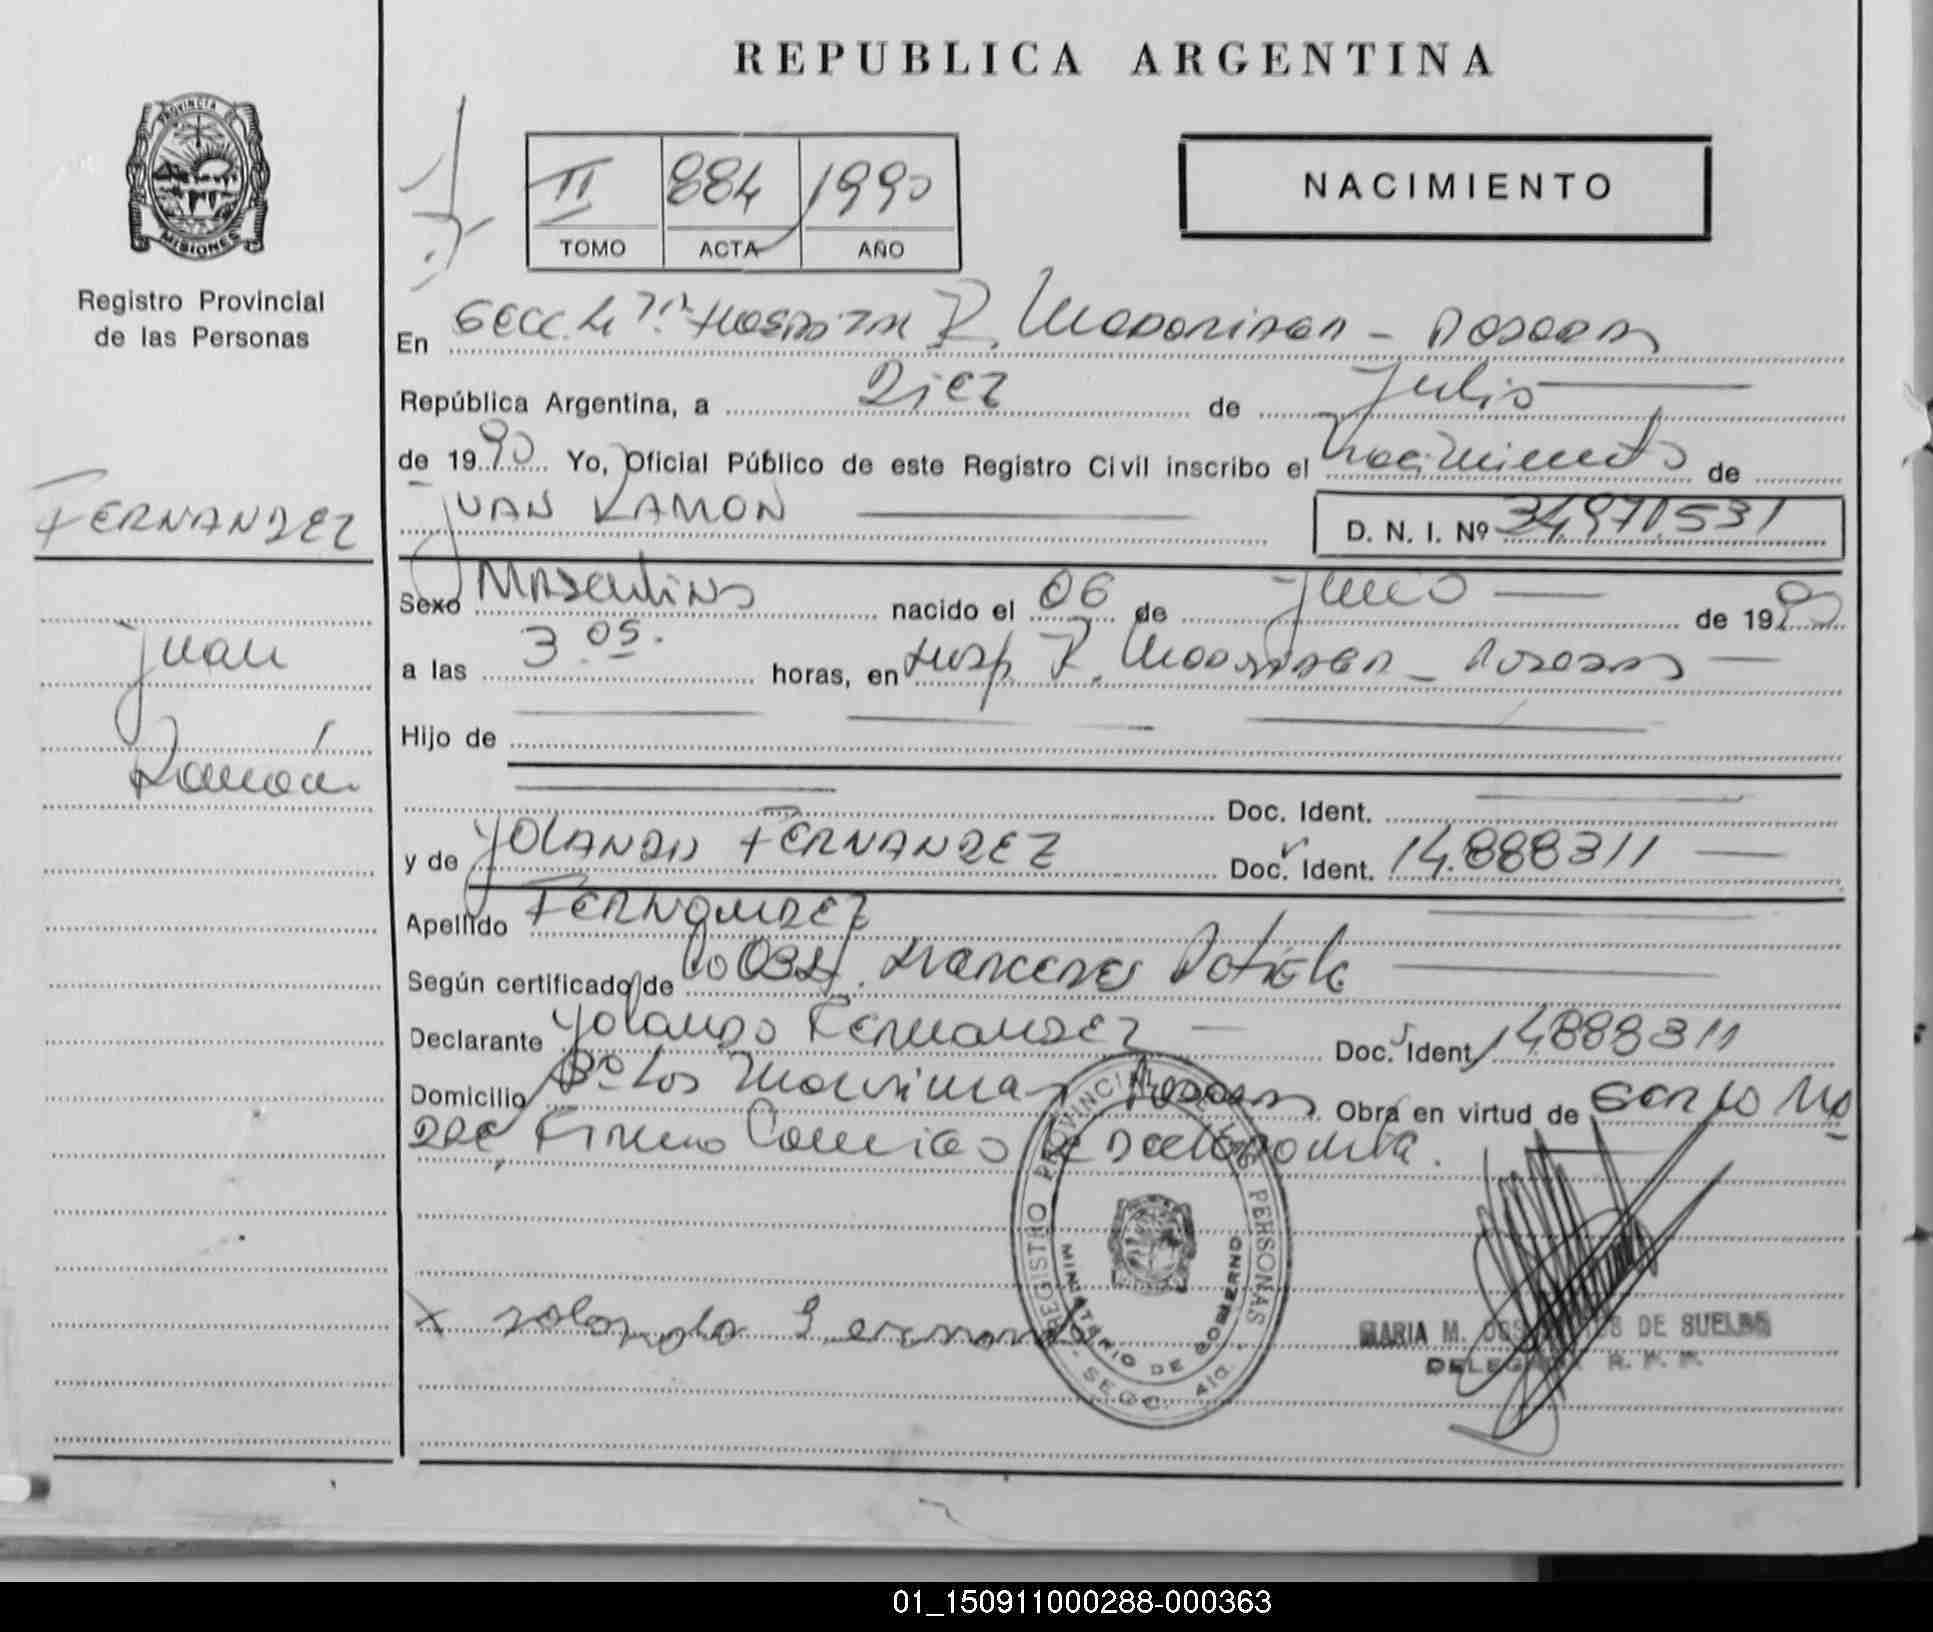 REPUBLICA ARGENTINA
PROVINCIA DE
MISIONES
Registro Provincial
de las Personas
II 884 1990
TOMO ACTA AÑO
NACIMIENTO
En Secc. 4ta Hospital R. Madariaga - Posadas
República Argentina, a Diez de Julio
de 1990 Yo, Oficial Público de este Registro Civil inscribo el nacimiento de
JUAN RAMON
D. N. I. Nº 34.971.531
FERNANDEZ
Juan
Ramón
Sexo Masculino nacido el 06 de de 1990
a las 3.05. horas, en Hosp. R. Madariaga - Posadas
Hijo de
Doc. Ident.
y de YOLANDA FERNANDEZ Doc. Ident. 14.888311
Apellido FERNANDEZ
Según certificado de
Declarante Yolanda Fernandez Doc. Ident. 14888311
Domicilio Bº Los Posadas Obra en virtud de
Firma la Declarante.
x yolanda Fernandez
REGISTRO PROVINCIAL DE LAS PERSONAS
MINISTERIO DE GOBIERNO
SECC. 4ta.
MARIA M. DOS DE SUELDO
DELEGADA R. P. P.
01_150911000288-000363